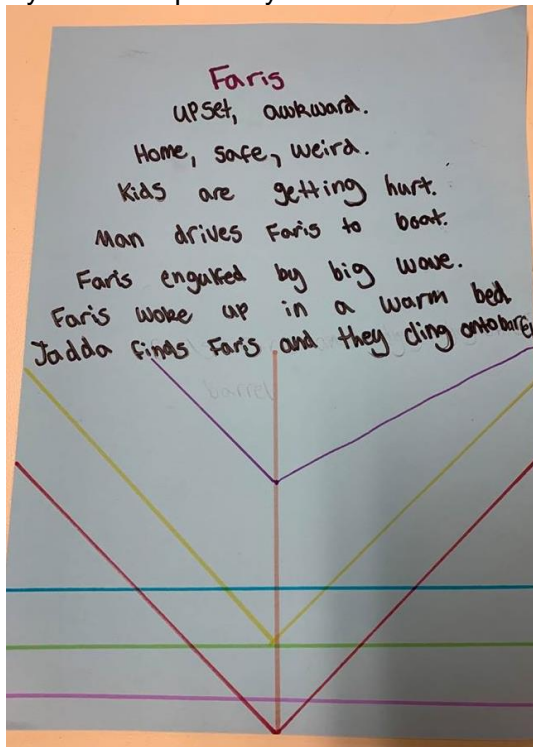 Faris
upset, awkward.
Home, safe, weird.
Kids are getting hurt.
Man drives Faris to boat.
Faris engulfed by big wave.
Faris woke up in a warm bed
Jadda finds Faris and they cling onto barrel
barrel